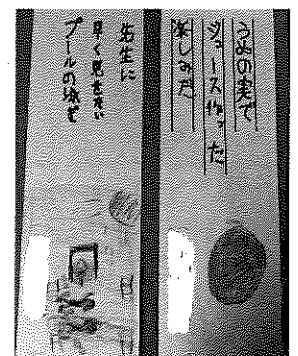 うめの実で
ジュース作った
楽しみだ
先生に
早く見せたい
プールの泳ぎ